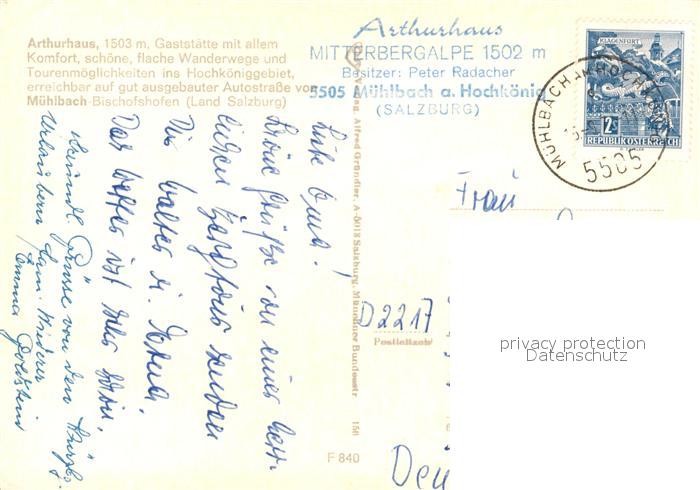 Arthurhaus, 1503 m, Gaststätte mit allem
Komfort, schöne, flache Wanderwege und
Tourenmöglichkeiten ins Hochköniggebiet,
erreichbar auf gut ausgebauter Autostraße von
Mühlbach-Bischofshofen (Land Salzburg)
Arthurhaus
MITTERBERGALPE 1502 m
Besitzer: Peter Radacher
5505 Mühlbach a. Hochkönig
(SALZBURG)
KLAGENFURT
2S
REPUBLIK ÖSTERREICH
MÜHLBACH AM HOCHKÖNIG
5505
Liebe Oma!
Liebe Grüße von einer herr-
lichen Bergtour senden
Dir Walter u.
Das Wetter ist sehr schön.
Herzl. Grüsse von den
Urlaubern Fam.
Emma
Verlag Alfred Gründler, A-5018 Salzburg, Münchner Bundesstr. 156
F 840
Frau
D2217
Postleitzahl
privacy protection
Datenschutz